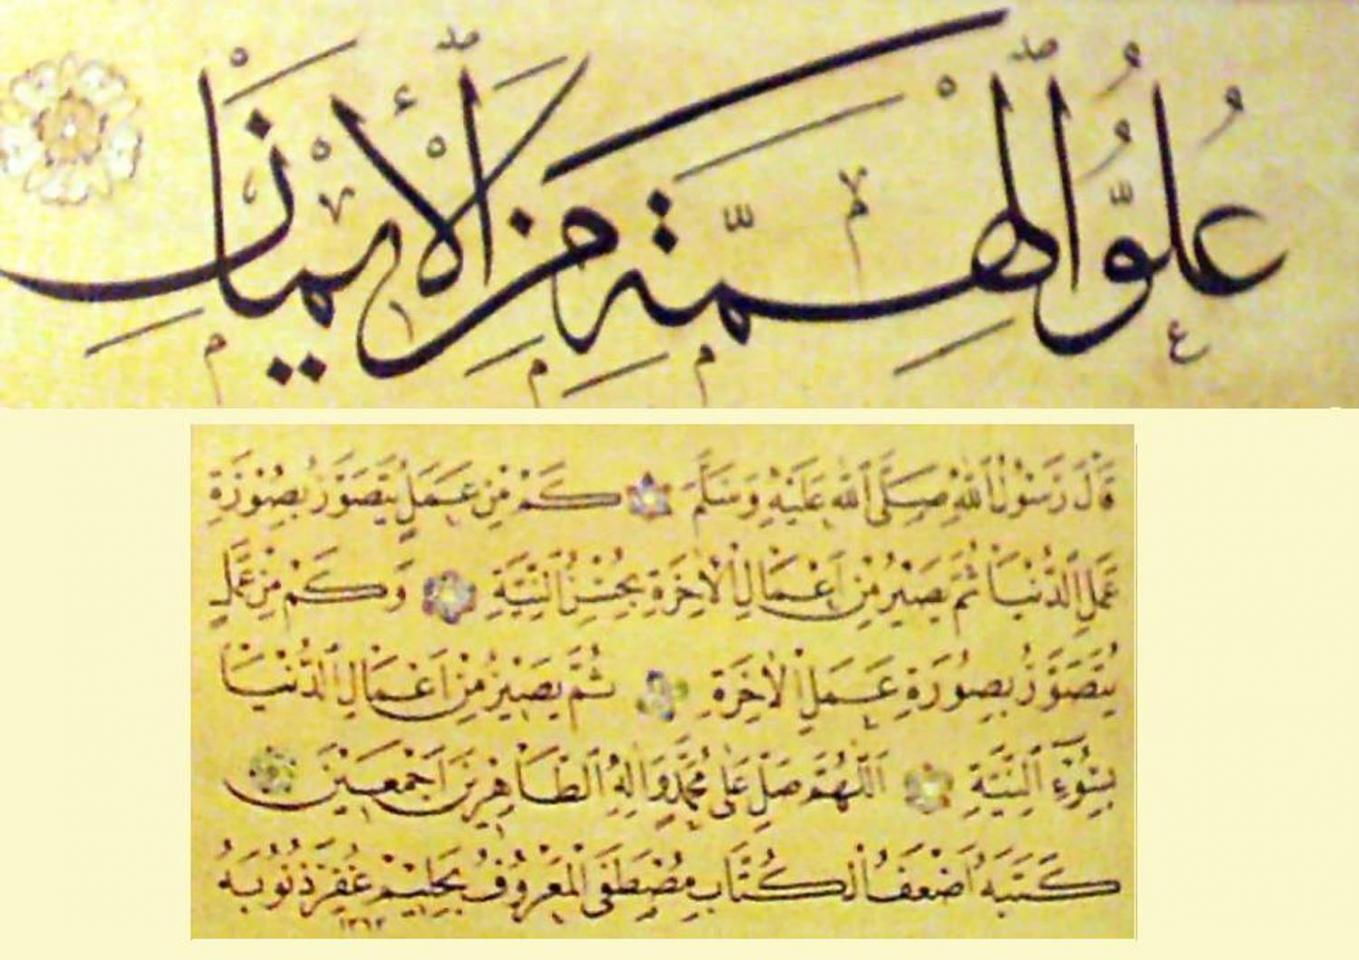 عُلُوُّ الْهِمَّةِ مِنَ الْإِيمَانِ
قَالَ رَسُولُ اللهِ صَلَّى اللهُ عَلَيْهِ وَسَلَّمَ كَمْ مِنْ عَمَلٍ يَتَصَوَّرُ بِصُورَةِ
عَمَلِ الدُّنْيَا ثُمَّ يَصِيرُ مِنْ اَعْمَالِ الْاٰخِرَةِ بِحُسْنِ النِّيَّةِ وَكَمْ مِنْ عَمَلٍ
يَتَصَوَّرُ بِصُورَةِ عَمَلِ الْاٰخِرَةِ ثُمَّ يَصِيرُ مِنْ اَعْمَالِ الدُّنْيَا
بِسُوءِ النِّيَّةِ اَللّٰهُمَّ صَلِّ عَلٰى مُحَمَّدٍ وَاٰلِهِ الطَّاهِرِينَ اَجْمَعِينَ
كَتَبَهُ اَضْعَفُ الْكُتَّابِ مُصْطَفَى الْمَعْرُوفُ بِحَلِيمْ غُفِرَ ذُنُوبُهُ
١٣٦٢